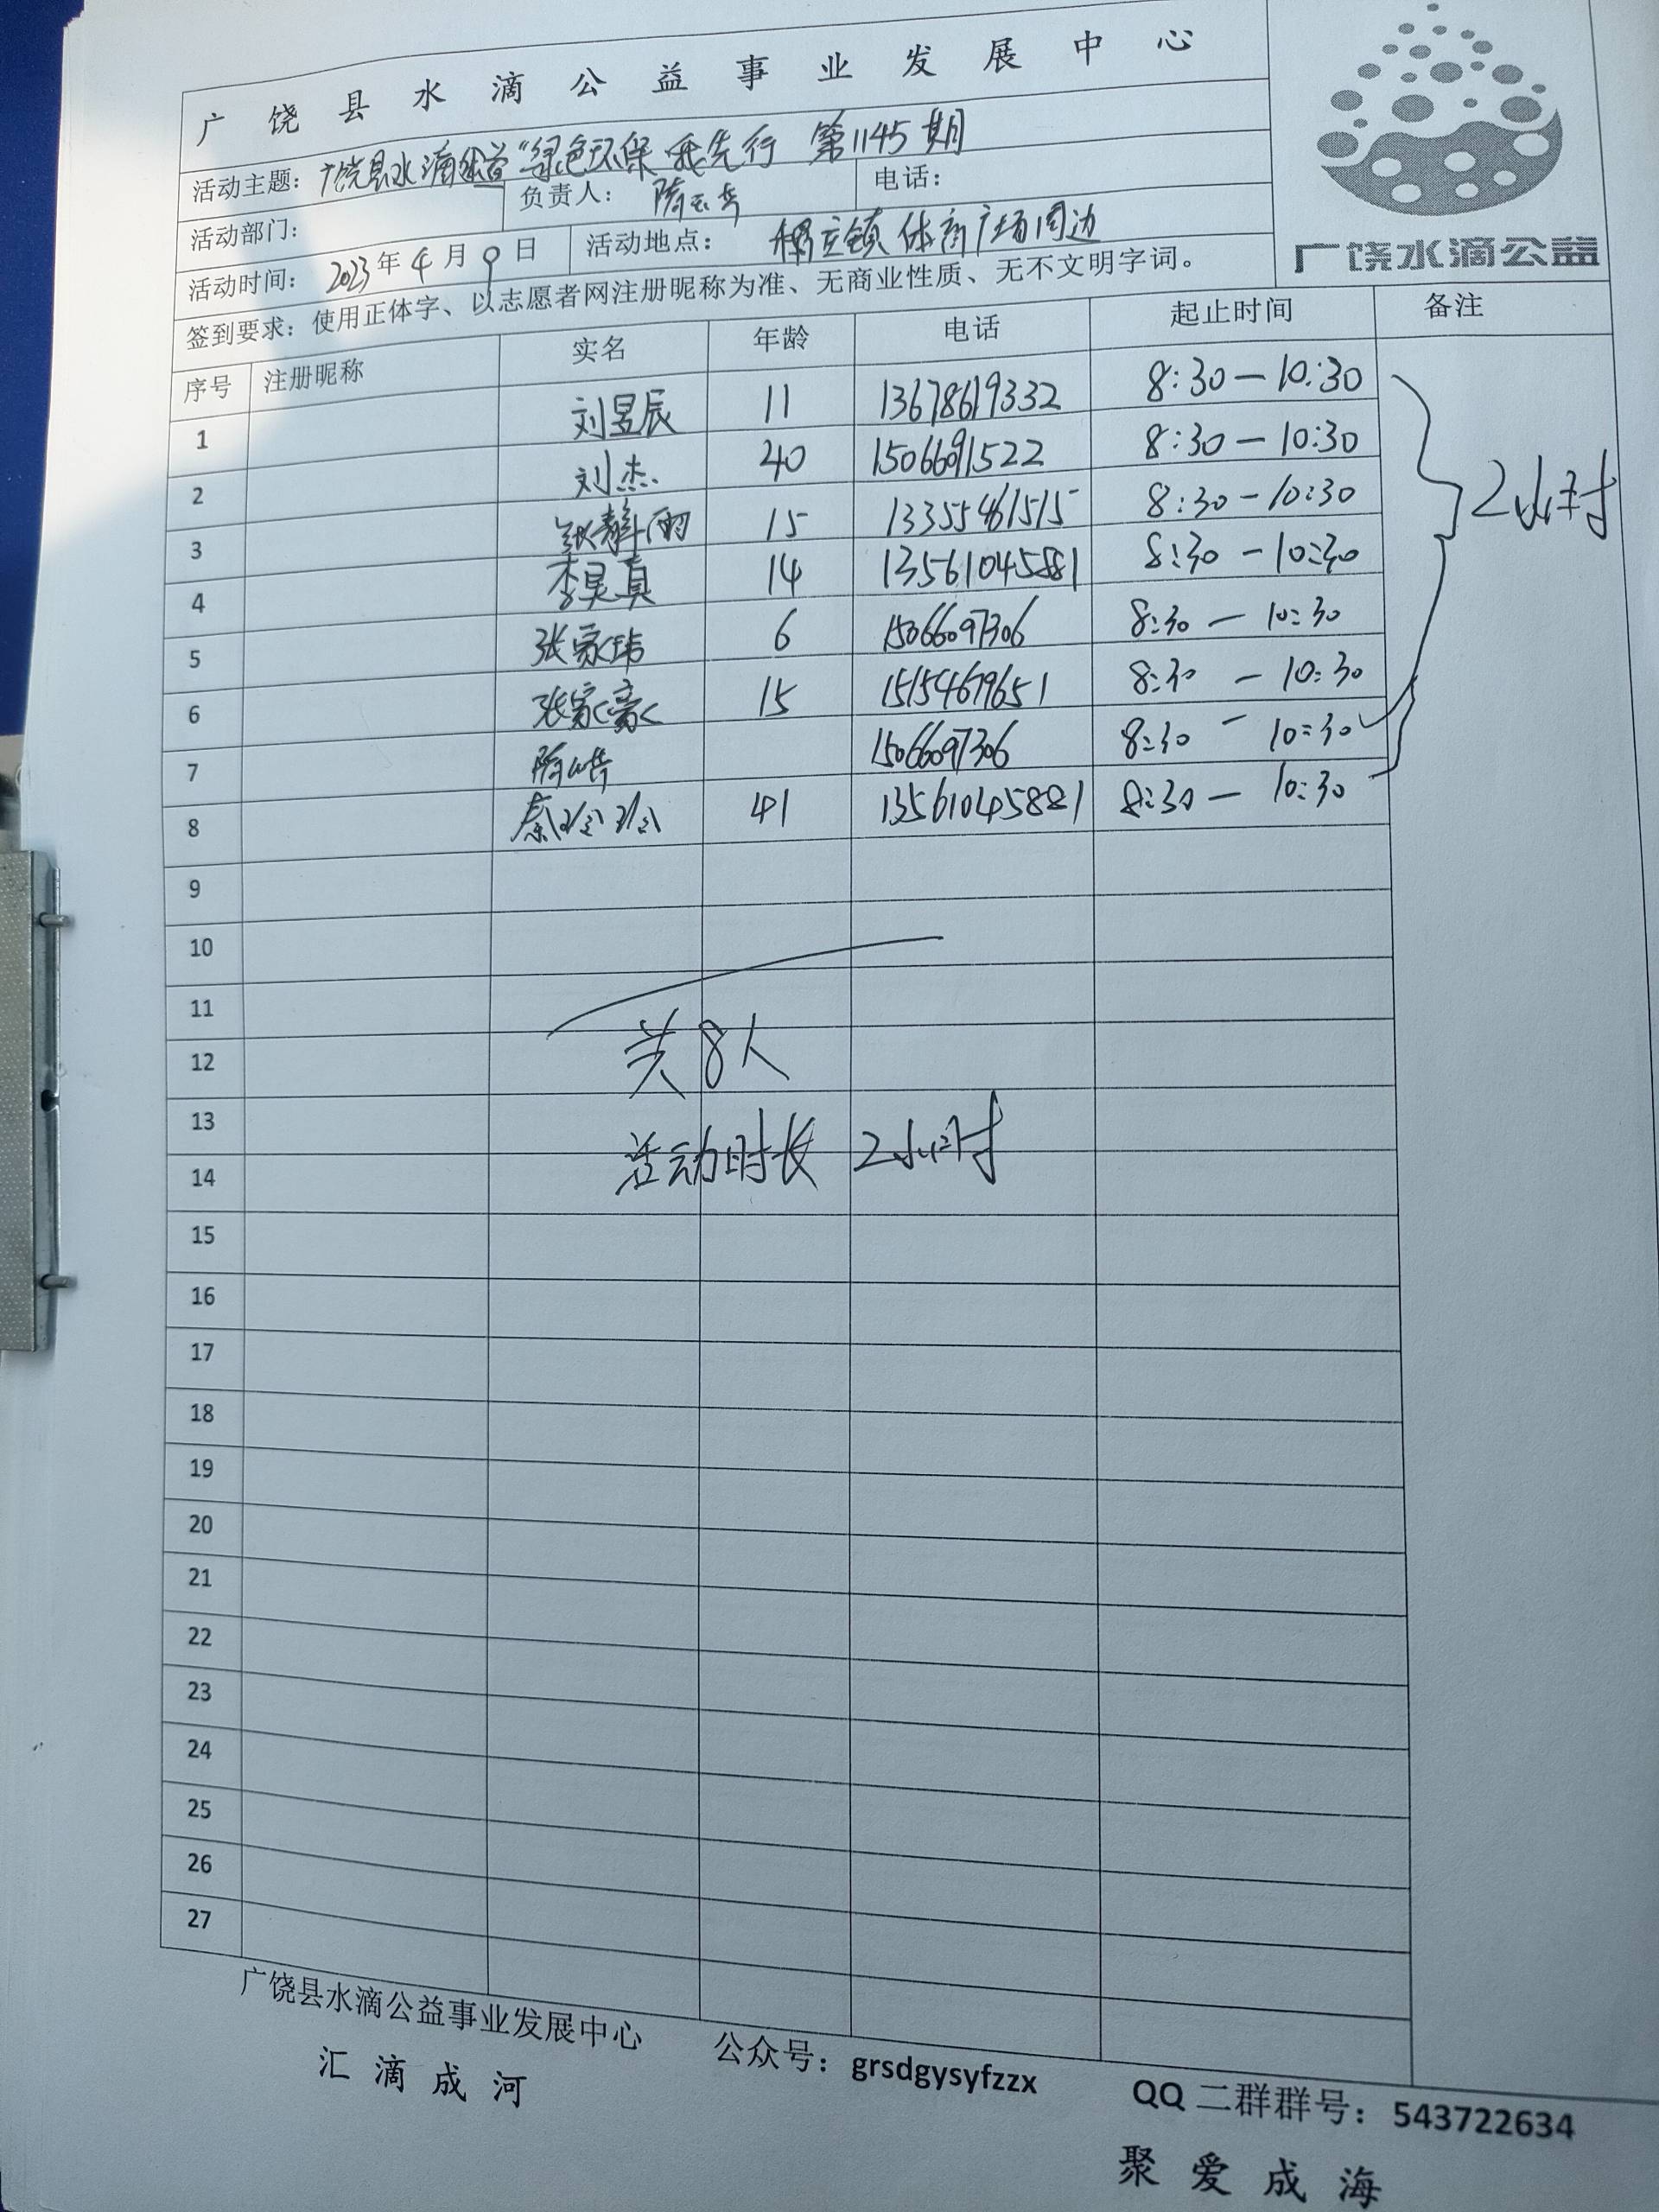 广饶县水滴公益事业发展中心
活动主题：广饶县水滴公益"绿色环保 我先行 第1145期
活动部门： 负责人： 隋 电话：
活动时间：2023年4月9日 活动地点： 稻庄镇 体育广场周边
签到要求：使用正体字、以志愿者网注册昵称为准、无商业性质、无不文明字词。
广饶水滴公益
序号 注册昵称 实名 年龄 电话 起止时间 备注
1 刘昱辰 11 13678619332 8:30—10:30
2 刘杰 40 15066091522 8:30—10:30
3 张静雨 15 13355461515 8:30—10:30
4 李昊真 14 13561045881 8:30—10:30
5 张家玮 6 15066097306 8:30—10:30
6 张家豪 15 15154679651 8:30—10:30
7 隋 15066097306 8:30—10:30
8 秦玲玲 41 13561045881 8:30—10:30
2小时
9
10
11
12
共8人
13
14
活动时长 2小时
15
16
17
18
19
20
21
22
23
24
25
26
27
广饶县水滴公益事业发展中心 公众号：grsdgysyfzzx QQ 二群群号：543722634
汇滴成河 聚爱成海